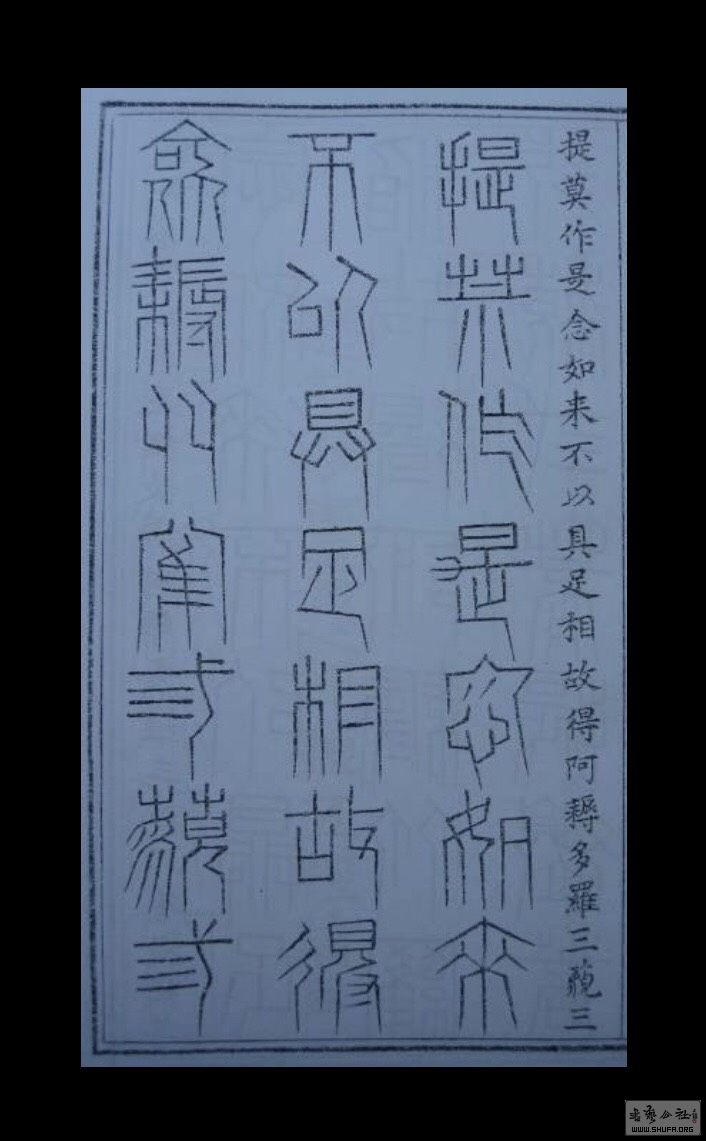 提莫作是念如来不以具足相故得阿耨多羅三藐三
提莫作是念如来
不以具足相故得
阿耨多羅三藐三
書藝公社
WWW.SHUFA.ORG